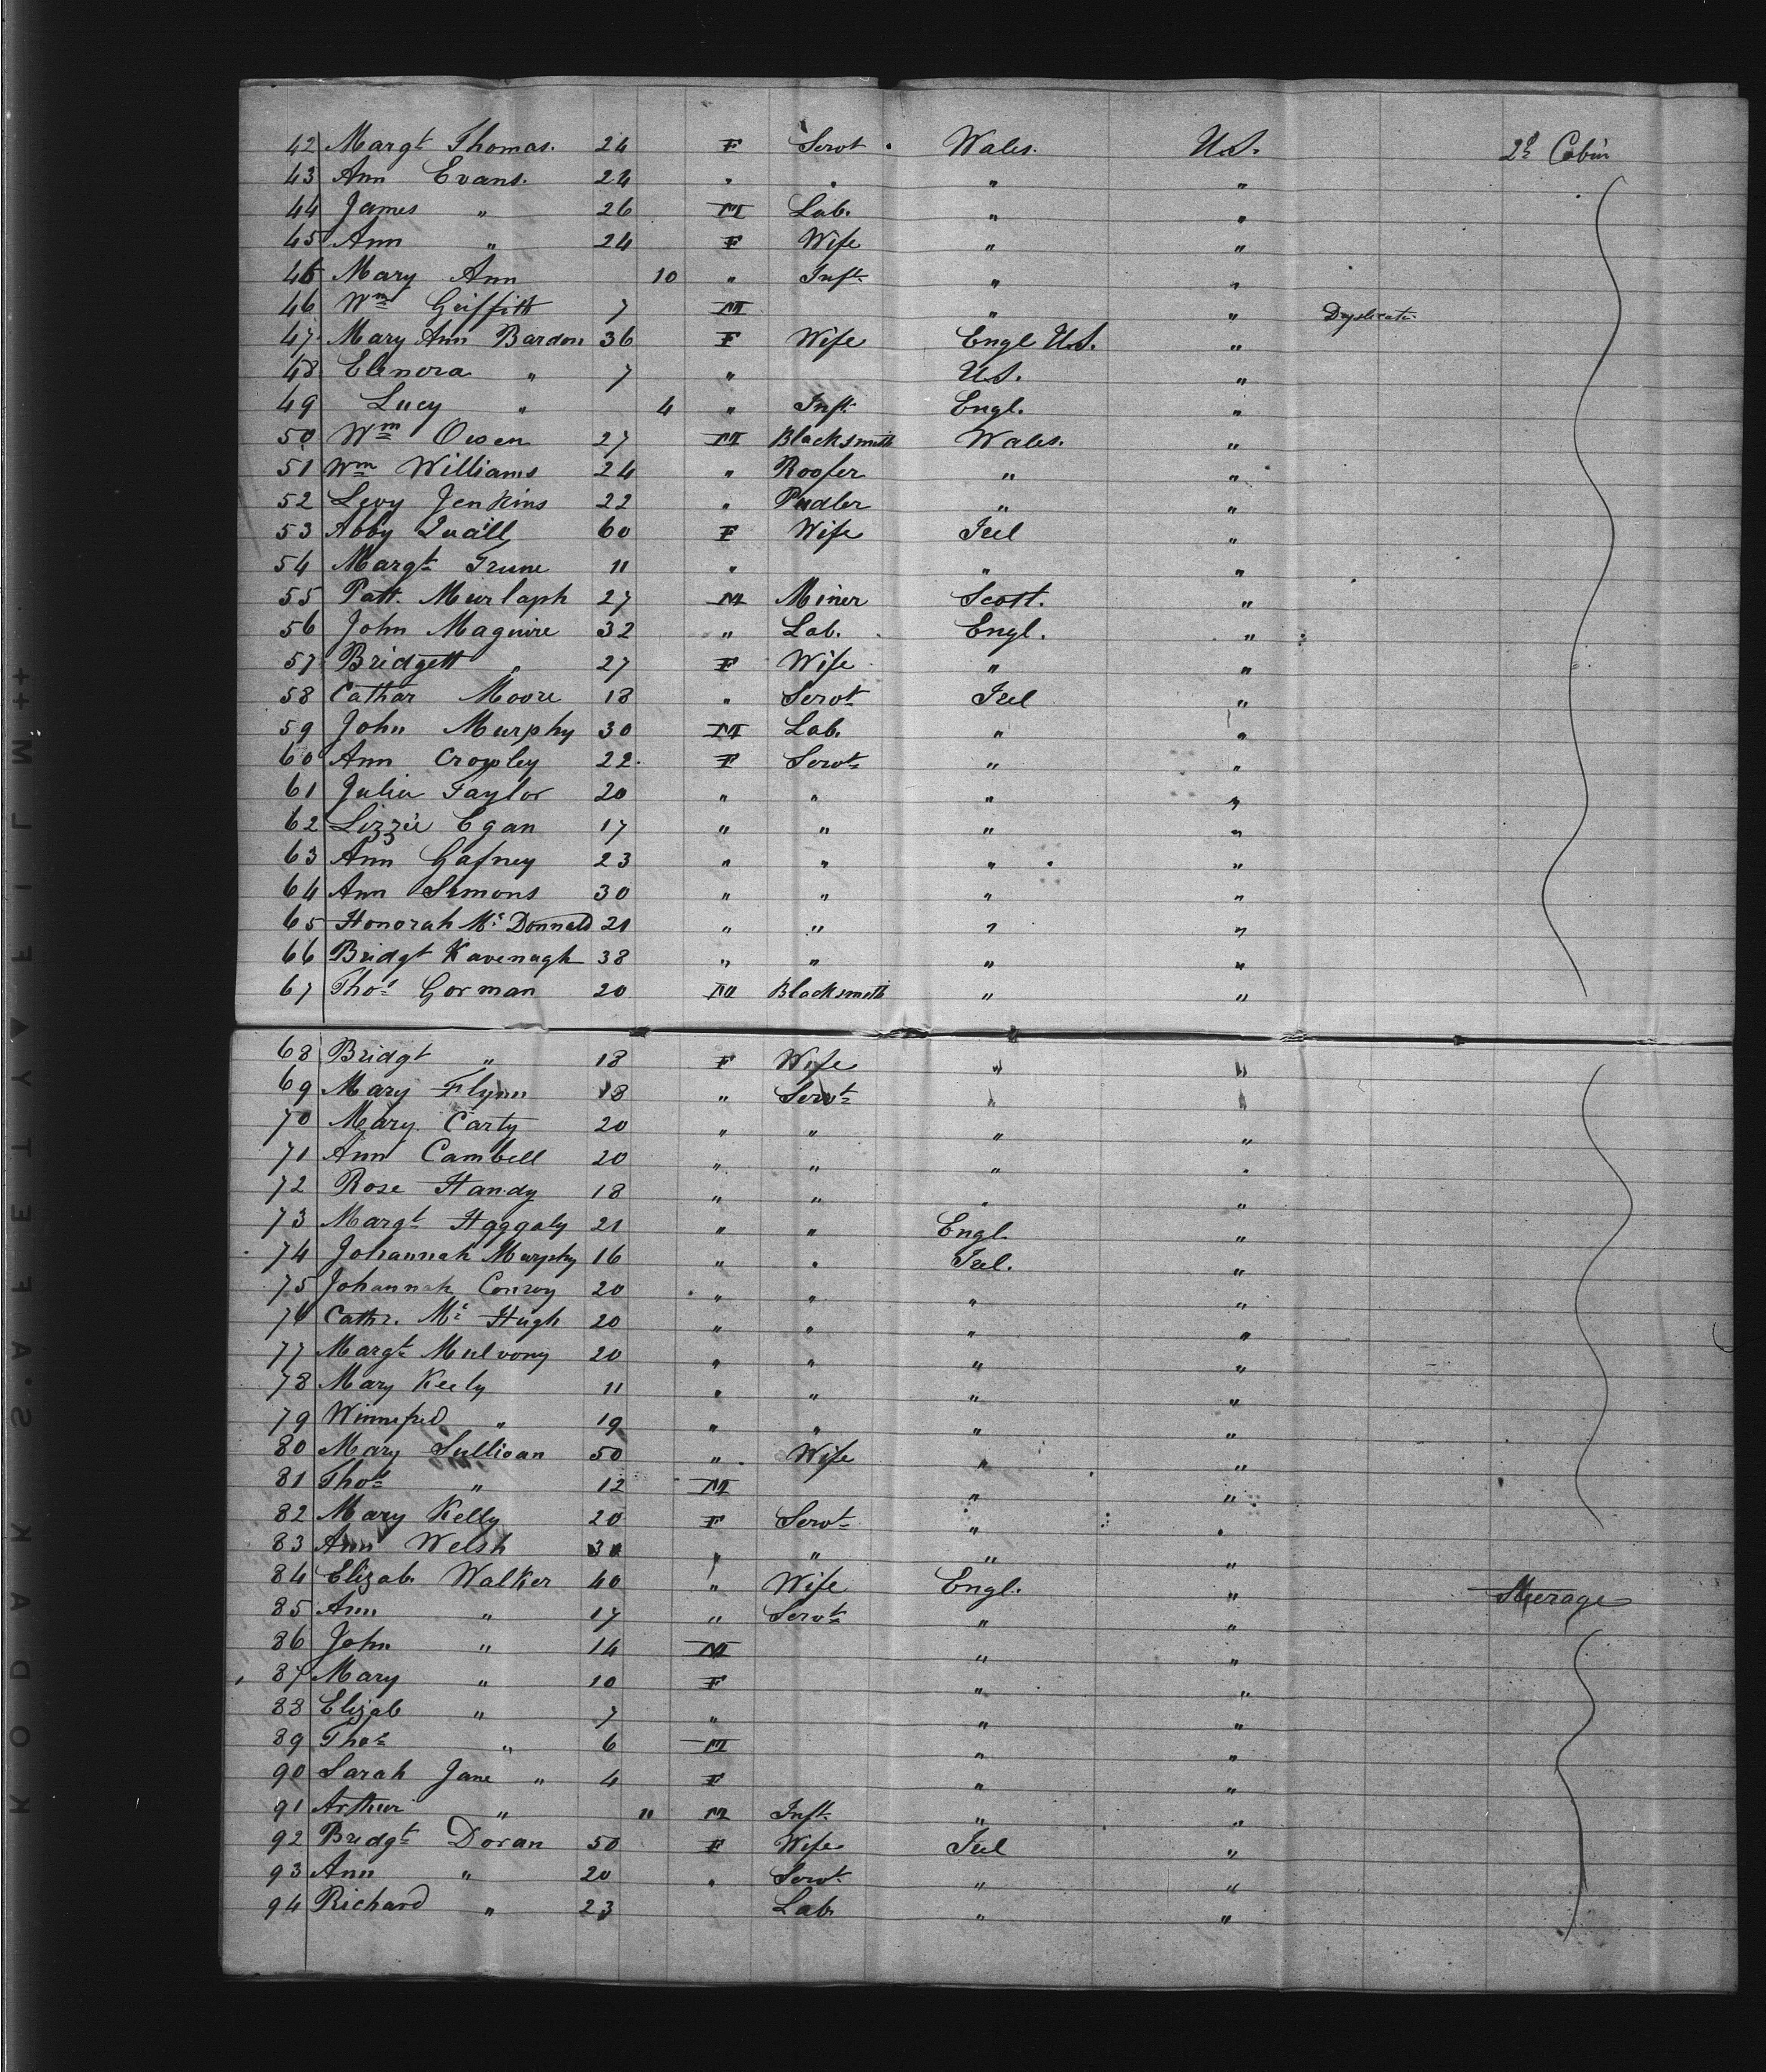 42 Margt Thomas. 24 F Servt. Wales. U.S. 2d Cabin
43 Ann Evans. 24 " " " "
44 James " 26 M Lab. " "
45 Ann " 24 F Wife " "
45 Mary Ann 10 " Inft. " "
46 Wm Griffith 7 M " " Duplicate
47 Mary Ann Bardon 36 F Wife Engl U.S. "
48 Elenora " 7 " U.S. "
49 Lucy " 4 " Inft. Engl. "
50 Wm Owen 27 M Blacksmith Wales. "
51 Wm Williams 24 " Roofer " "
52 Levy Jenkins 22 " Pudler " "
53 Abby Quall 60 F Wife Irel "
54 Margt Trune 11 " " "
55 Patt. Murlaph 27 M Miner Scott. "
56 John Maguire 32 " Lab. Engl. "
57 Bridgett " 27 F Wife " "
58 Cathar Moore 18 " Servt Irel "
59 John Murphy 30 M Lab. " "
60 Ann Crowley 22 F Servt " "
61 Julia Taylor 20 " " " "
62 Lizzie Egan 17 " " " "
63 Ann Gafney 23 " " " "
64 Ann Simons 30 " " " "
65 Honorah Mc Donnald 21 " " " "
66 Bridgt Kavenagh 38 " " " "
67 Thos Gorman 20 M Blacksmith " "
68 Bridgt " 18 F Wife " "
69 Mary Flynn 18 " Servt " "
70 Mary Carty 20 " " " "
71 Ann Cambell 20 " " " "
72 Rose Handy 18 " " " "
73 Margt Haggaly 21 " " Engl. "
74 Johannah Murphy 16 " " Irel. "
75 Johannah Conroy 20 " " " "
76 Cathr. Mc Hugh 20 " " " "
77 Margt Mulvony 20 " " " "
78 Mary Keely 11 " " " "
79 Winnefred " 19 " " " "
80 Mary Sullivan 50 " Wife " "
81 Thos " 12 M " "
82 Mary Kelly 20 F Servt " "
83 Ann Welsh " " " "
84 Elizab. Walker 40 " Wife Engl. " Steerage
85 Ann " 17 " Servt " "
86 John " 14 M " "
87 Mary " 10 F " "
88 Elizab " 7 " " "
89 Thos " 6 M " "
90 Sarah Jane " 4 F " "
91 Arthur " 11 M Inft. " "
92 Bridgt Doran 50 F Wife Irel "
93 Ann " 20 " Servt " "
94 Richard " 23 Lab. " "
KODAK·SAFETY▲FILM ++